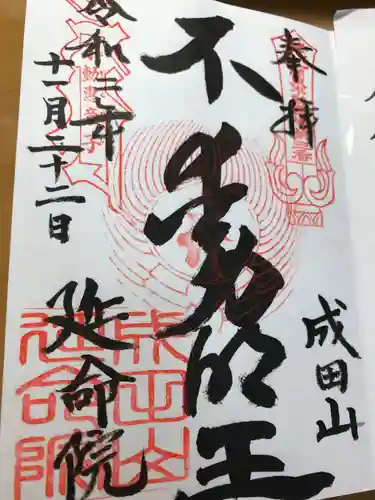 奉拝
成田山
不動明王
令和三年
十一月二十二日
延命院